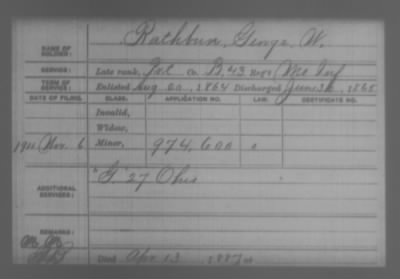 NAME OF SOLDIER: Rathbun, George W.
SERVICE: Late rank, Pvt Co. B, 43 Reg't Mo Inf
TERM OF SERVICE: Enlisted Aug 20, 1864 Discharged June 30, 1865
DATE OF FILING. CLASS. APPLICATION NO. LAW. CERTIFICATE NO.
Invalid,
Widow,
1911 Nov. 6 Minor, 974,600
ADDITIONAL SERVICES: "G" 27 Ohio
REMARKS:
Died Apr 13, 1887, at